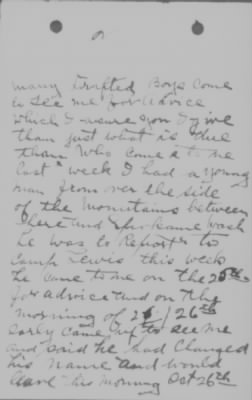 many Drafted Boys Come
to see me for advice
which I assure you I give
them just what is due
them Who Come to me
last week I had a young
man from over the side
of the Mountains between
here and Spokane Wash
he was to Report to
Camp Lewis this week
he came to me on the 25th
for advice and on the
morning of 25/26th
early came up to see me
and said he had Changed
his Name and would
leave this morning Oct 26th